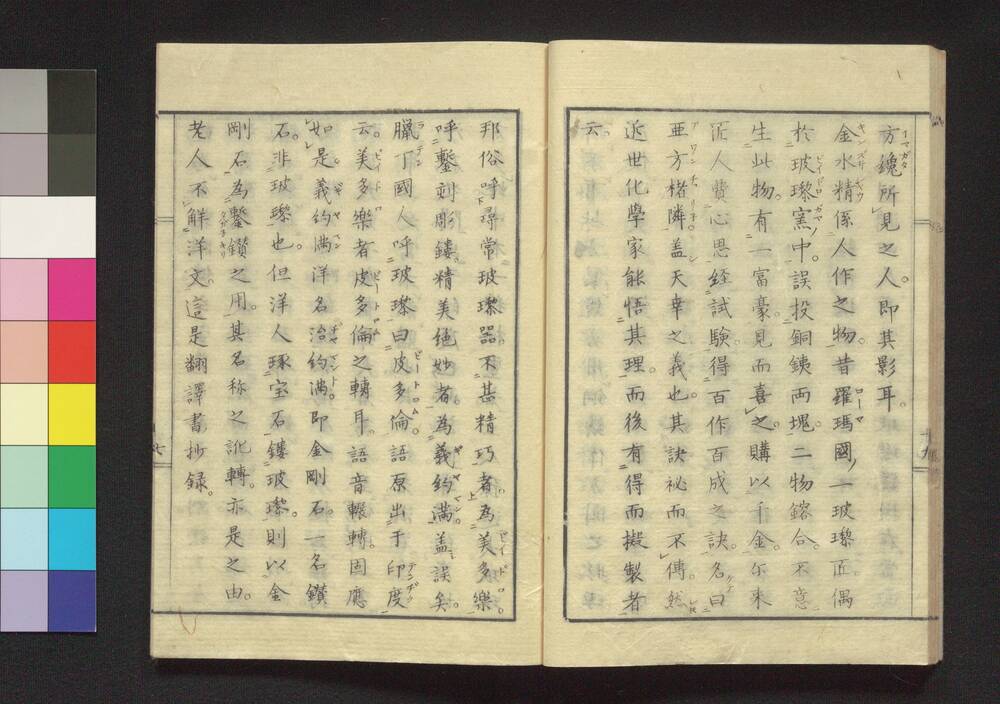 方鑱所見之人。即其影耳。
金水精係人作之物。昔羅瑪國一玻瓈匠偶
於玻瓈窯中。誤投銅鐵両塊。二物鎔合。不意
生此物。有一富豪。見而喜之。購以千金。尓来
匠人費心思。経試験。得百作百成之訣。名曰
亜方楮隣。盖天幸之義也。其訣祕而不傳。然
近世化學家能悟其理。而後有得而擬製者
云。
邦俗呼尋常玻瓈器。不甚精巧者。為美多樂。
呼鏨刻彫鏤。精美絶妙者。為義約満。盖誤矣。
臘丁國人呼玻瓈曰皮多倫。語原出于印度
云。美多樂者皮多倫之轉耳。語音輾轉。固應
如是。義約満洋名治約満。即金剛石。一名鑚
石。非玻瓈也。但洋人琢宝石。鏤玻瓈。則以金
剛石。為鏨鑚之用。其名称之訛轉。亦是之由。
老人不解洋文。這是翻譯書抄録。